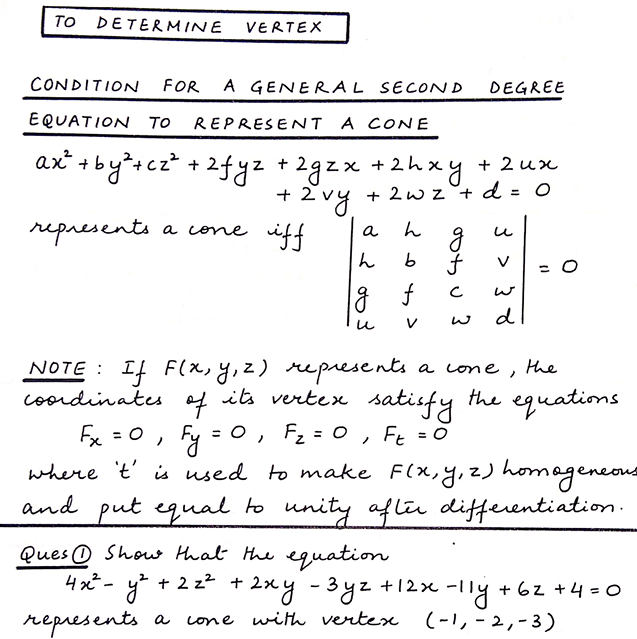 TO DETERMINE VERTEX
CONDITION FOR A GENERAL SECOND DEGREE
EQUATION TO REPRESENT A CONE
ax² + by² + cz² + 2fyz + 2gzx + 2hxy + 2ux
+ 2vy + 2wz + d = 0
represents a cone iff
| a h g u |
| h b f v | = 0
| g f c w |
| u v w d |
NOTE : If F(x, y, z) represents a cone, the
coordinates of its vertex satisfy the equations
Fx = 0, Fy = 0, Fz = 0, Ft = 0
where 't' is used to make F(x, y, z) homogeneous
and put equal to unity after differentiation.
Ques ① Show that the equation
4x² - y² + 2z² + 2xy - 3yz + 12x - 11y + 6z + 4 = 0
represents a cone with vertex (-1, -2, -3)